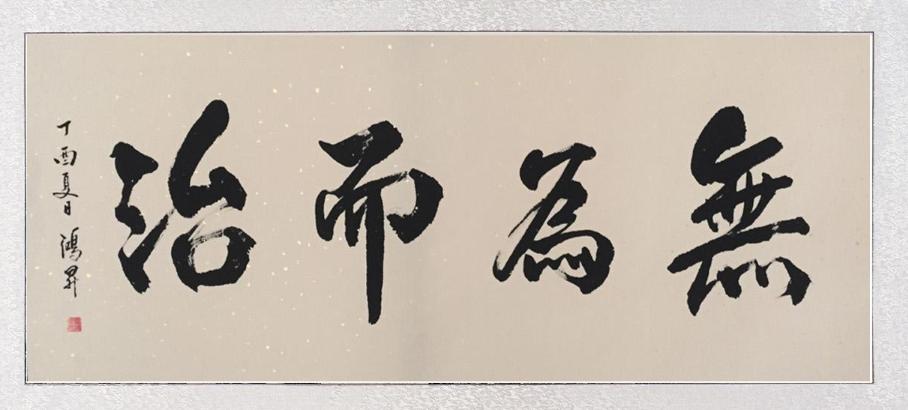 無為而治
丁酉夏日 鴻昇